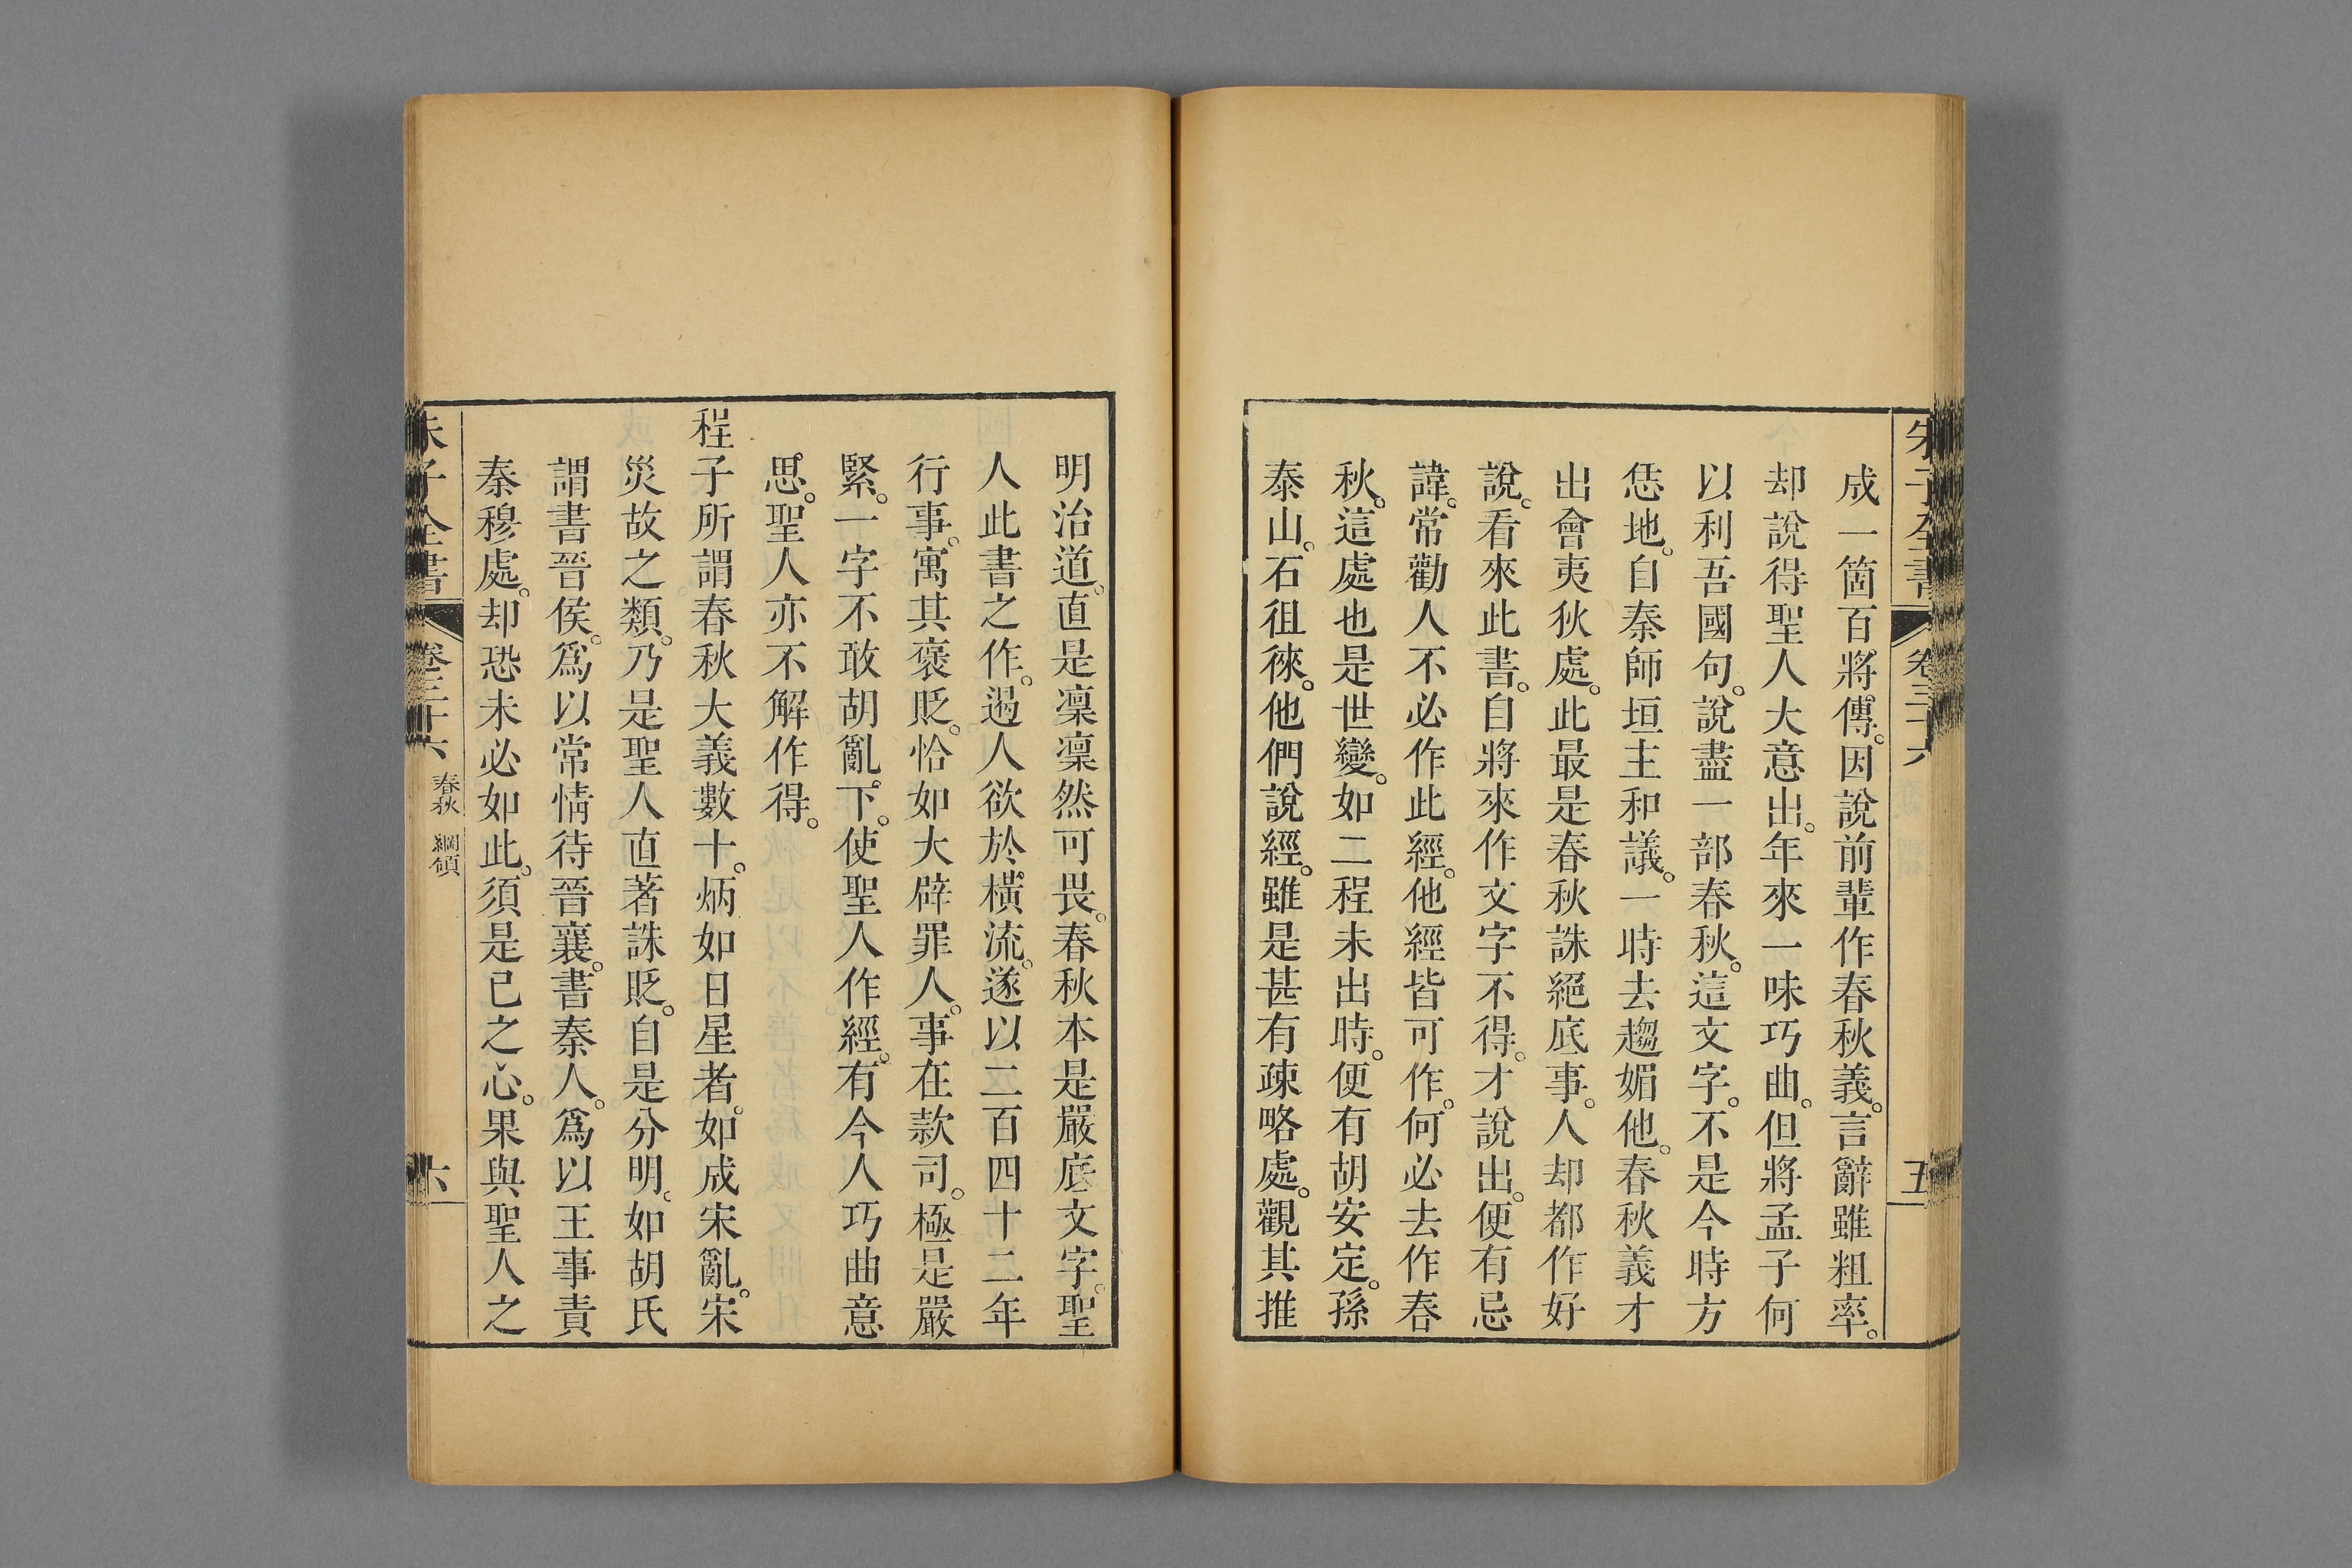 朱子全書 卷三十六 五
成一箇百將傳。因說前輩作春秋義。言辭雖粗率。
却說得聖人大意出。年來一味巧曲。但將孟子何
以利吾國句。說盡一部春秋。這文字。不是今時方
恁地。自秦師垣主和議。一時去趨媚他。春秋義才
出會夷狄處。此最是春秋誅絕底事。人却都作好
說。看來此書。自將來作文字不得。才說出。便有忌
諱。常勸人不必作此經。他經皆可作。何必去作春
秋。這處也是世變。如二程未出時。便有胡安定。孫
泰山。石徂徠。他們說經。雖是甚有疎略處。觀其推
明治道。直是凜凜然可畏。春秋本是嚴底文字。聖
人此書之作。遏人欲於橫流。遂以二百四十二年
行事。寓其褒貶。恰如大辟罪人。事在款司。極是嚴
緊。一字不敢胡亂下。使聖人作經。有今人巧曲意
思。聖人亦不解作得。
程子所謂春秋大義數十。炳如日星者。如成宋亂。宋
災故之類。乃是聖人直著誅貶。自是分明。如胡氏
謂書晉侯。爲以常情待晉襄。書秦人。爲以王事責
秦穆處。却恐未必如此。須是已之心。果與聖人之
朱子全書 卷三十六 春秋 綱領 六